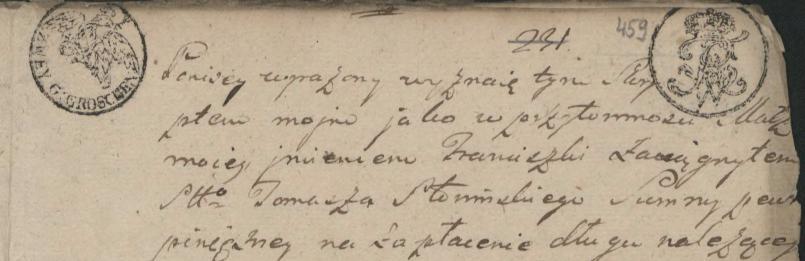 ZWEY G. GROSCHEN
231.
459
Poniżey wyrażony wyznaię tym Skry
ptem moim jako w przytomności Małż
moiey jmieniem Franciszki Zaciągnąłem
Tomasza Słonińskiego Summy pew
piniężney na zapłacenie długu należącey